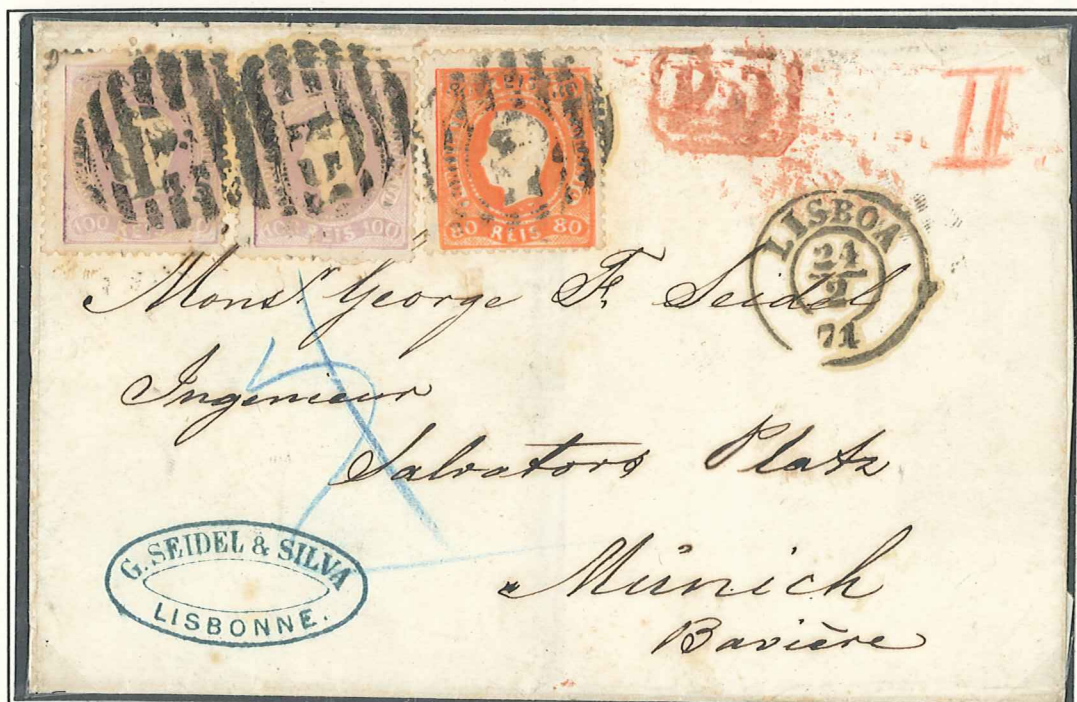 100 REIS
100 REIS 100
80 REIS 80
P.D
II
LISBOA
24
2
71
Monsr George F. Seidel
Ingenieur
Salvators Platz
Münich
Bavière
G. SEIDEL & SILVA
LISBONNE.